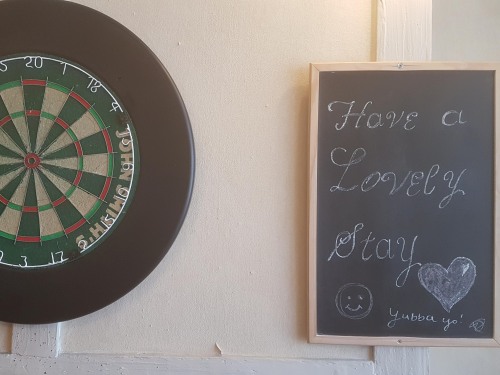 5 20 1 18 4
JOHN SMITH'S
2
3 17
Have a
Lovely
Stay
Yubba yo!